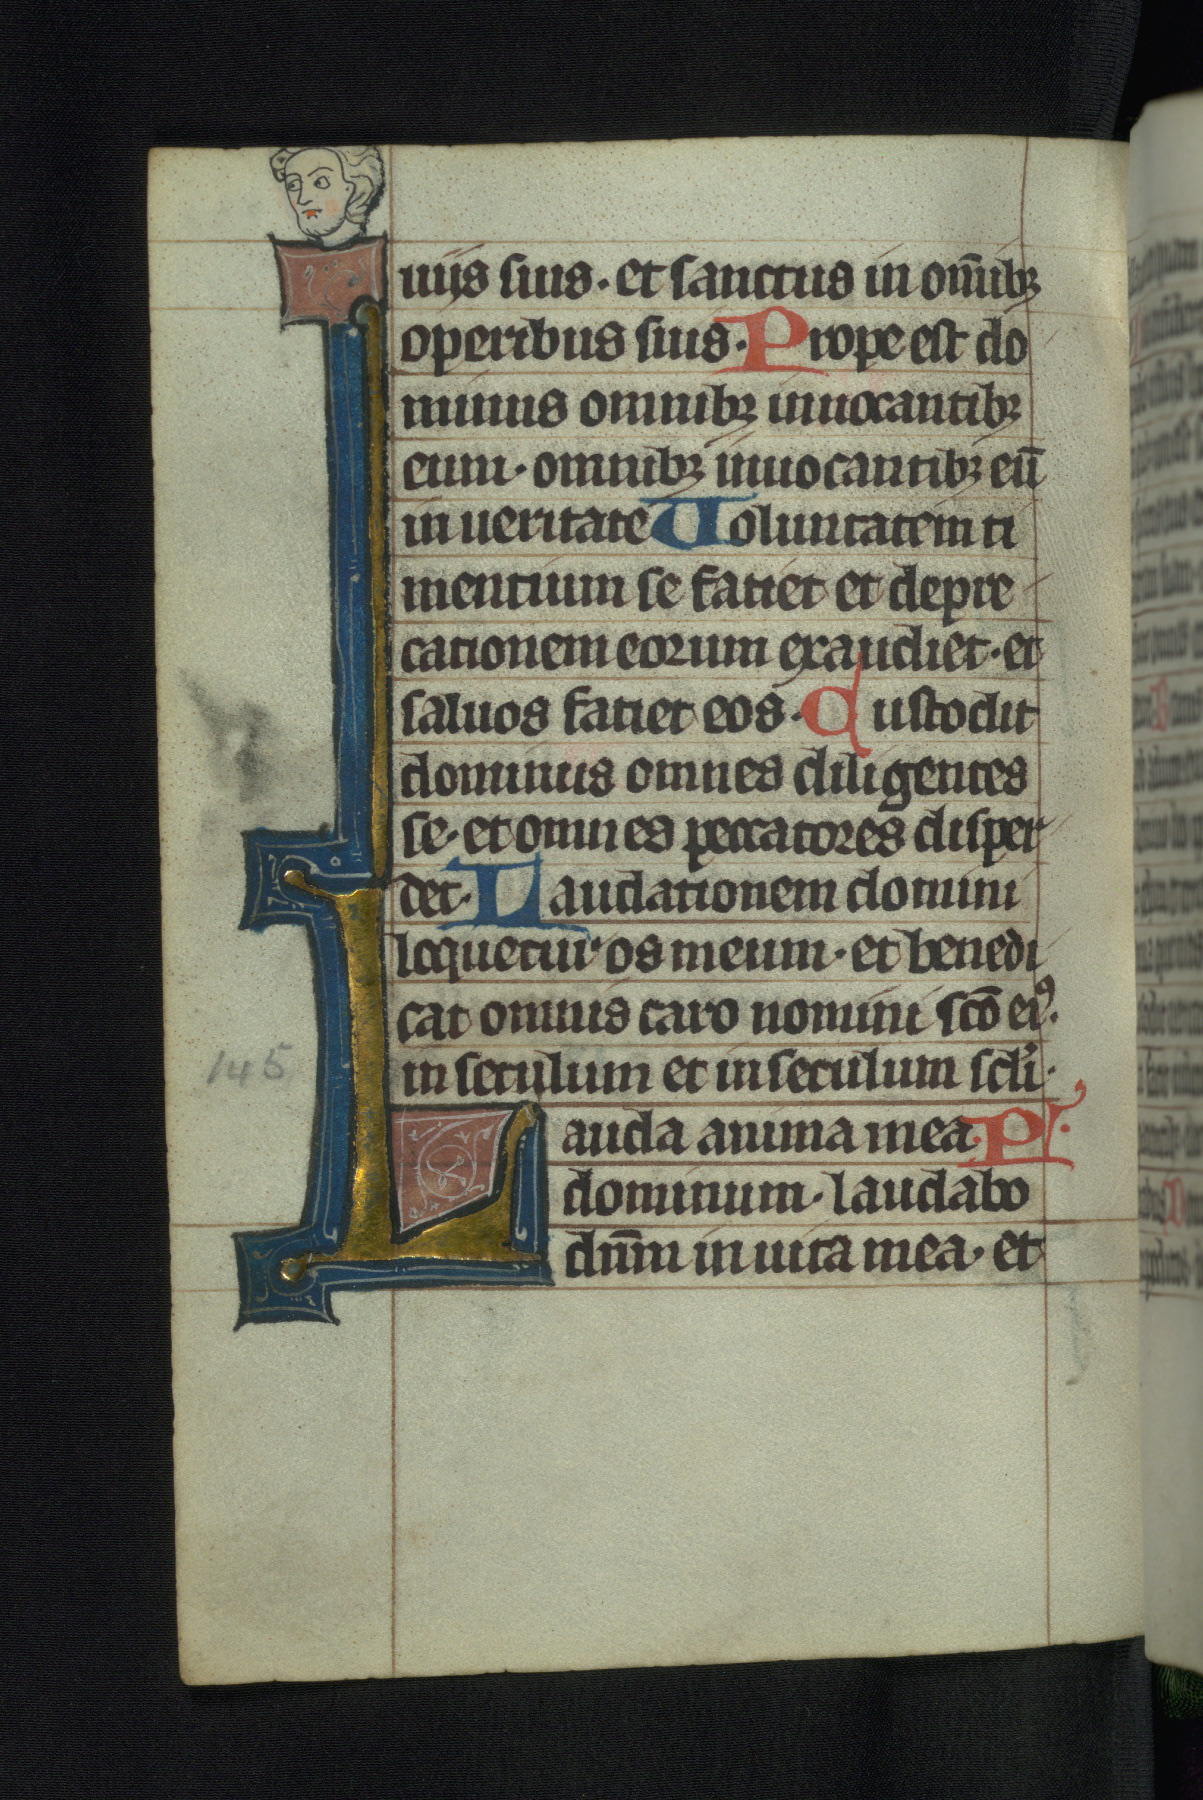 uiis suis · et sanctus in om̄ibꝫ
operibus suis · Prope est do
minus omnibꝫ inuocantibꝫ
eum · omnibꝫ inuocantibꝫ eū
in ueritate Voluntatem ti
mentium se faciet et depre
cationem eorum exaudiet · et
saluos faciet eos · Custodit
dominus omnes diligentes
se · et omnes peccatores disper
det · Laudationem domini
loquetur os meum · et benedi
cat omnis caro nomini sc̄o eiꝰ ·
in seculum et in seculum scl̓i ·
145
Lauda anima mea · Ps ·
dominum · laudabo
dn̄m in uita mea · et